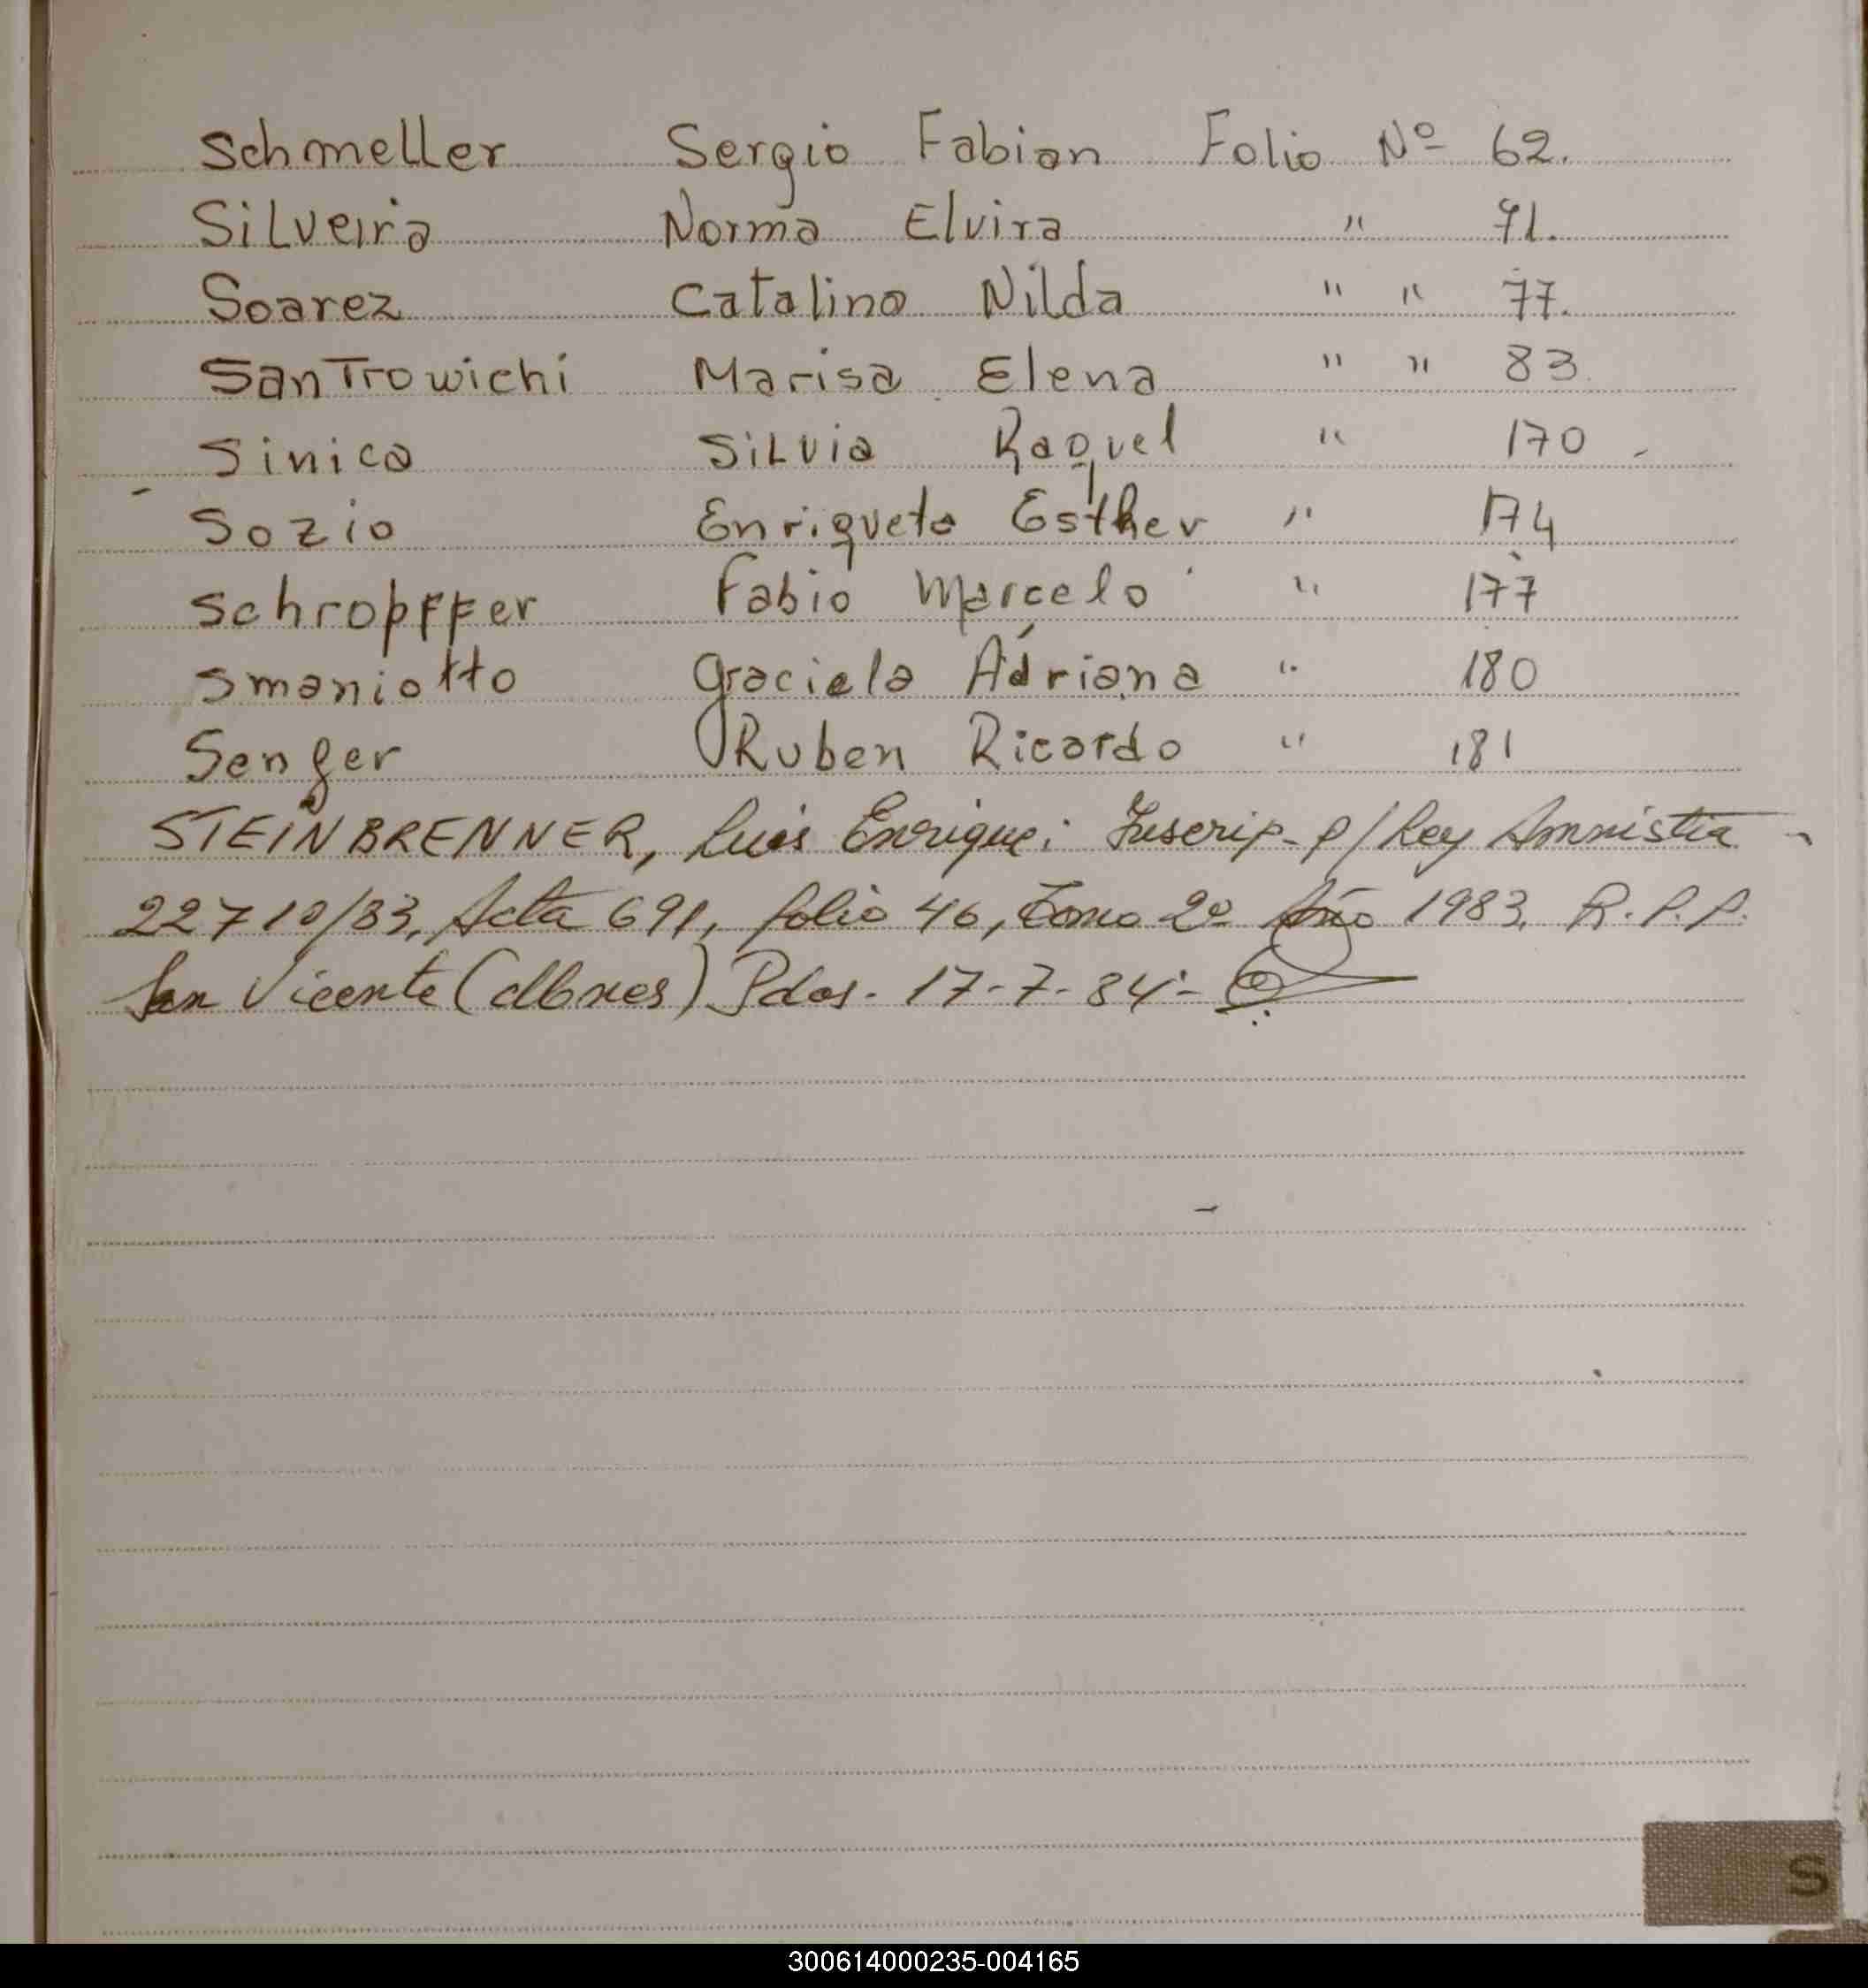 Schmeller Sergio Fabian Folio Nº 62.
Silveira Norma Elvira " 71.
Soarez Catalina Nilda " " 77.
SanTrowichi Marisa Elena " " 83.
Sinica Silvia Raquel " 170 -
Sozio Enriqueta Esther " 174
Schropffer Fabio Marcelo " 177
Smaniotto Graciela Adriana " 180
Senger Ruben Ricardo " 181
STEINBRENNER, Luis Enrique: Inscrip. p/ Ley Amnistia
22710/83, Acta 691, folio 46, Tomo 2º Año 1983. R.P.P.
San Vicente (Mnes) Pdas. 17-7-84.-
S
300614000235-004165